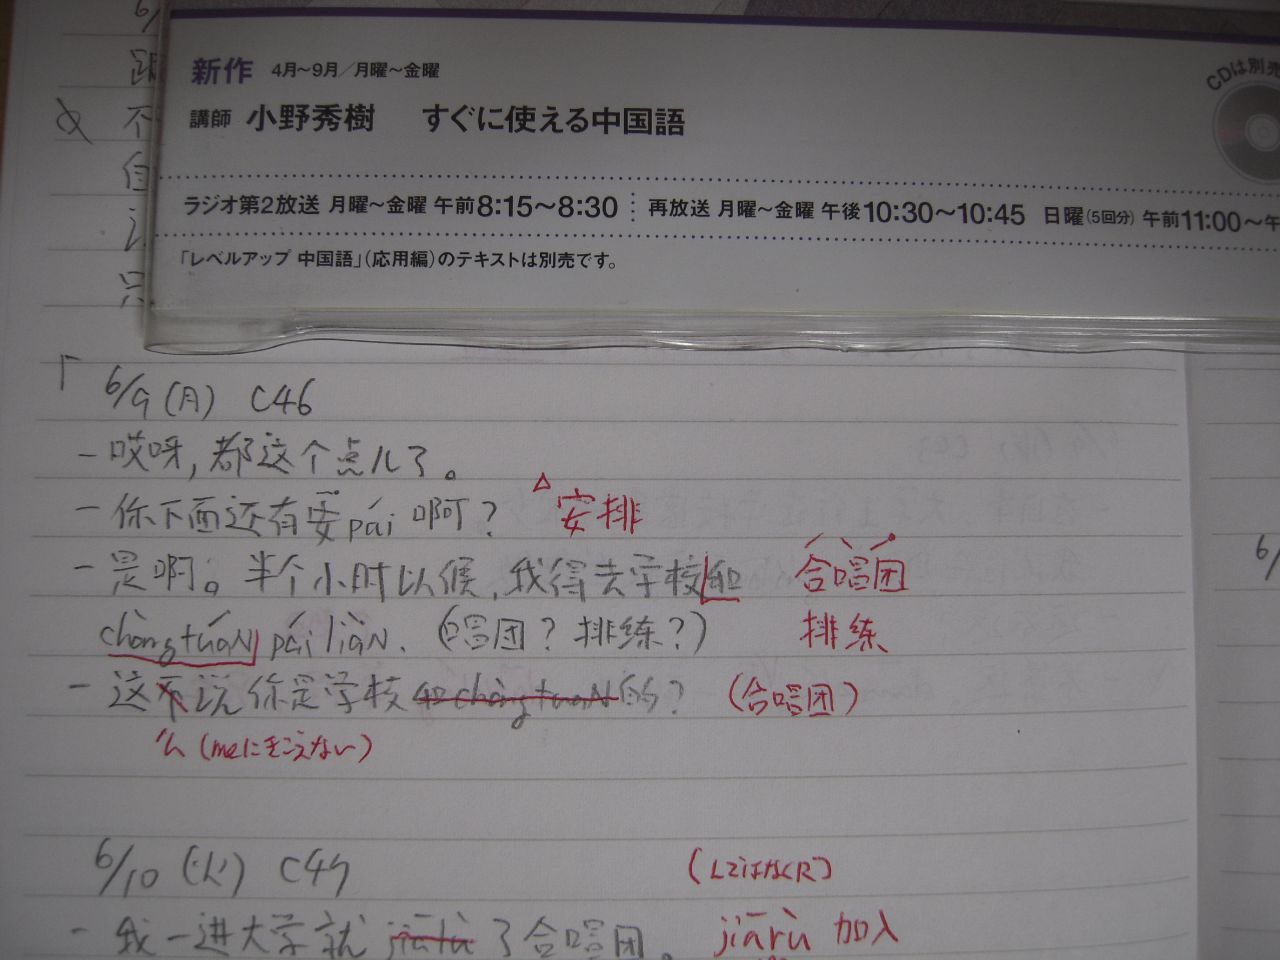 6/
新作 4月~9月/月曜~金曜
CDは別売
講師 小野秀樹 すぐに使える中国語
不
自
ラジオ第2放送 月曜~金曜 午前8:15~8:30 再放送 月曜~金曜 午後10:30~10:45 日曜(5回分) 午前11:00~午
「レベルアップ 中国語」(応用編)のテキストは別売です。
只
「 6/9(月) C46
- 哎呀,都这个点儿了。
- 你下面还有要pái 啊? △ 安排
- 是啊。半个小时以候,我得去学校和 合唱团
chàngtuáN páiliàN. (唱团?排练?) 排练
- 这不说你是学校和chàngtuáN的? (合唱团)
么(meにきこえない)
6/10 (火) C47 (LではなくR)
- 我一进大学就 jiālù 了合唱团。 jiārù 加入
6/